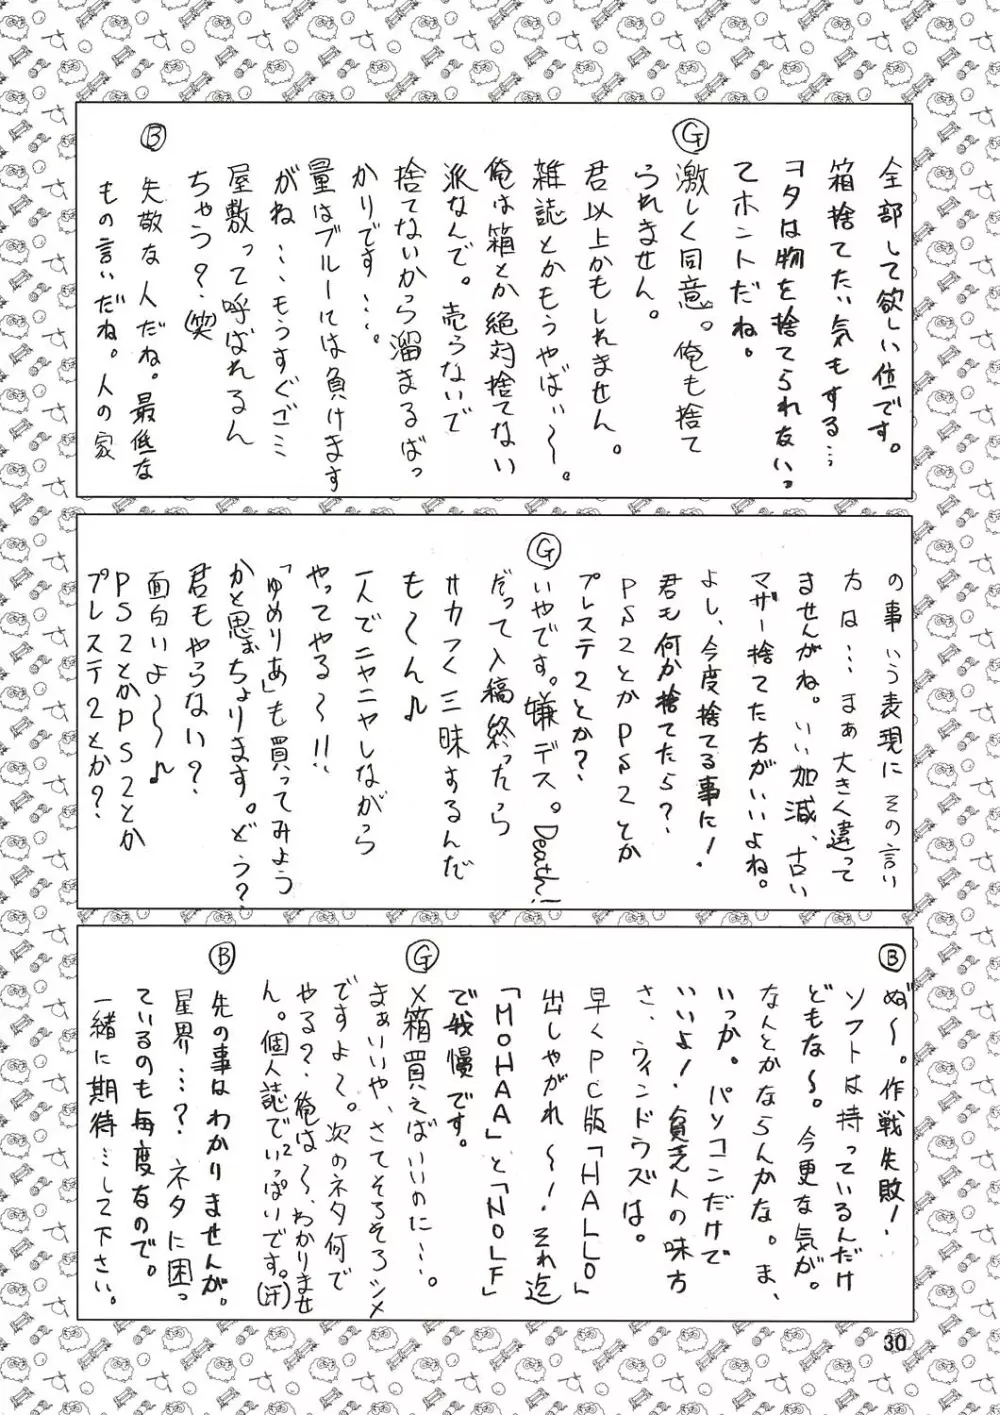 全部して欲しい位です。
箱捨てたい気もする…
ヲタは物を捨てられないっ
てホントだね。
Ⓖ 激しく同意。俺も捨て
られません。
君以上かもしれません。
雑誌とかもうやばぃ～。
俺は箱とか絶対捨てない
派なんで。売らないで
捨てないから溜まるばっ
かりです…。
量はブルーには負けます
がね…もうすぐゴミ
屋敷って呼ばれるん
ちゃう？(笑)
Ⓑ 失敬な人だね。最低な
もの言いだね。人の家
の事いう表現にその言い
方は…まぁ大きく違って
ませんがね。いい加減、古い
マザー捨てた方がいいよね。
よし、今度捨てる事に！
君も何か捨てたら？
PS2とかPS2とか
プレステ2とか？
Ⓖ いやです。嫌デス。Death!
だって入稿終ったら
サカつく三昧するんだ
も～ん♪
一人でニヤニヤしながら
やってやる～!!
「ゆめりあ」も買ってみよう
かと思ぉちょります。どう？
君もやらない？
面白いよ～♪
PS2とかPS2とか
プレステ2とか？
Ⓑ ぬ～。作戦失敗！
ソフトは持っているんだけ
どもな～。今更な気が。
なんとかならんかな。ま、
いっか。パソコンだけで
いいよ！貧乏人の味方
さ、ウィンドウズは。
早くPC版「HALLO」
出しやがれ～！それ迄
「MOHAA」と「NOLF」
で我慢です。
Ⓖ X箱買えばいいのに…。
まぁいいや、さてそろそろシメ
ですよ～。次のネタ何で
やる？俺は～、わかりませ
ん。個人誌でいっぱいです。(汗)
Ⓑ 先の事はわかりませんが。
星界…？ネタに困っ
ているのも毎度なので。
一緒に期待…して下さい。
30